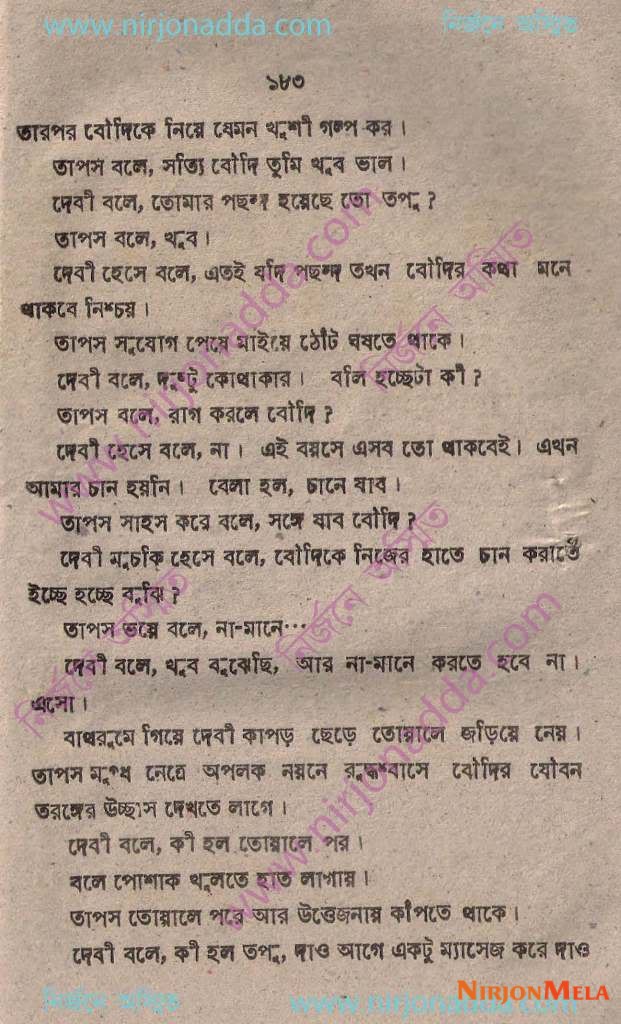 www.nirjonadda.com নির্জনে অস্মিত
১৮৩
তারপর বৌদিকে নিয়ে যেমন খুশী গল্প কর।
তাপস বলে, সত্যি বৌদি তুমি খুব ভাল।
দেবী বলে, তোমার পছন্দ হয়েছে তো তপু?
তাপস বলে, খুব।
দেবী হেসে বলে, এতই যদি পছন্দ তখন বৌদির কথা মনে
থাকবে নিশ্চয়।
তাপস সুযোগ পেয়ে মাইয়ে ঠোঁট ঘষতে থাকে।
দেবী বলে, দুষ্টু কোথাকার। বলি হচ্ছেটা কী?
তাপস বলে, রাগ করলে বৌদি?
দেবী হেসে বলে, না। এই বয়সে এসব তো থাকবেই। এখন
আমার চান হয়নি। বেলা হল, চানে যাব।
তাপস সাহস করে বলে, সঙ্গে যাব বৌদি?
দেবী মুচকি হেসে বলে, বৌদিকে নিজের হাতে চান করাতে
ইচ্ছে হচ্ছে বুঝি?
তাপস ভয়ে বলে, না-মানে…
দেবী বলে, খুব বুঝেছি, আর না-মানে করতে হবে না।
এসো।
বাথরুমে গিয়ে দেবী কাপড় ছেড়ে তোয়ালে জড়িয়ে নেয়।
তাপস মুগ্ধ নেত্রে অপলক নয়নে রুদ্ধশ্বাসে বৌদির যৌবন
তরঙ্গের উচ্ছাস দেখতে লাগে।
দেবী বলে, কী হল তোয়ালে পর।
বলে পোশাক খুলতে হাত লাগায়।
তাপস তোয়ালে পরে আর উত্তেজনায় কাঁপতে থাকে।
দেবী বলে, কী হল তপু, দাও আগে একটু ম্যাসেজ করে দাও
NIRJONMELA
নির্জনে অস্মিত www.nirjonadda.com